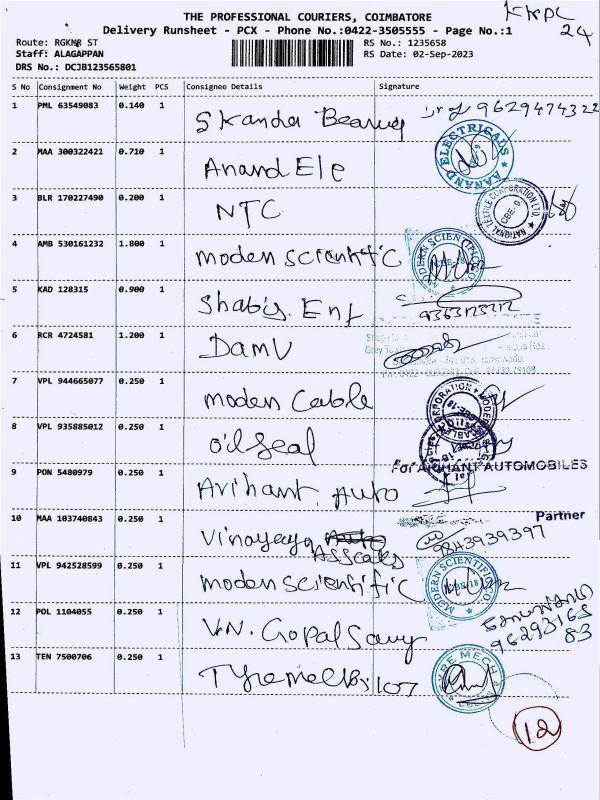 THE PROFESSIONAL COURIERS, COIMBATORE
KKPC
24
Delivery Runsheet - PCX - Phone No.:0422-3505555 - Page No.:1
Route: RGKMR ST RS No.: 1235658
Staff: ALAGAPPAN RS Date: 02-Sep-2023
DRS No.: DCJB123565801
S No Consignment No Weight PCS Consignee Details Signature
1 PML 63549083 0.140 1 Skanda Bearing 9629474322
2 MAA 300322421 0.710 1 Anand Ele AANAND ELECTRICALS
3 BLR 170227490 0.200 1 NTC NATIONAL TEXTILE CORPORATION LTD. CBE-9
4 AMB 530161232 1.800 1 moden scientific MODERN SCIENTIFIC CO. CBE-18
5 KAD 128315 0.900 1 Shabis. Ent 9363123212
6 RCR 4724581 1.200 1 DAMU
7 VPL 944665077 0.250 1 moden Cable
8 VPL 935885012 0.250 1 oilseal
9 PON 5480979 0.250 1 Arihant. Auto For ARIHANT AUTOMOBILES
Partner
10 MAA 103740843 0.250 1 Vinayaga 9843939397
11 VPL 942528599 0.250 1 moden scientific MODERN SCIENTIFIC CO. CBE-18
12 POL 1104055 0.250 1 V.N. Gopalsamy 96293168
83
13 TEN 7500706 0.250 1
12